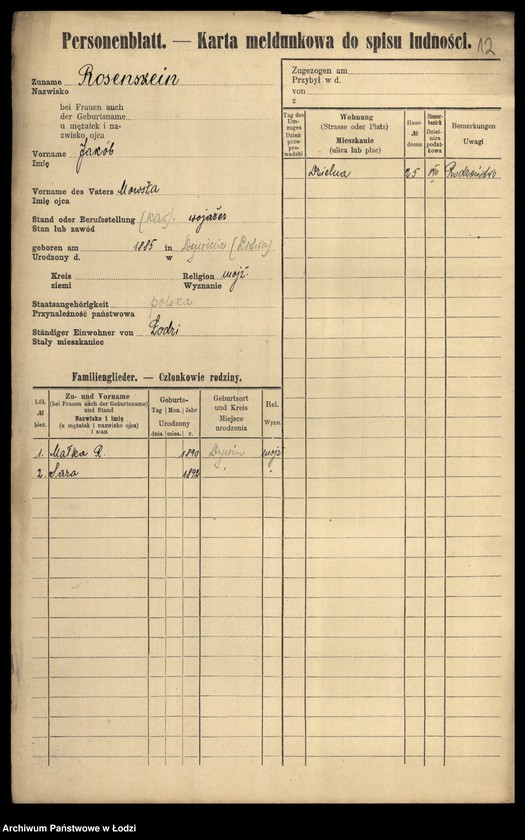 Personenblatt. — Karta meldunkowa do spisu ludności. 12
Zuname Rosensztein
Nazwisko
bei Frauen auch
der Geburtsname
u mężatek i na-
zwisko ojca
Vorname Jakób
Imię
Vorname des Vaters
Imię ojca
Stand oder Berufsstellung
Stan lub zawód
geboren am 1885 in
Urodzony d. w
Kreis Religion mojż.
ziemi Wyznanie
Staatsangehörigkeit polska
Przynależność państwowa
Ständiger Einwohner von Łodzi
Stały mieszkaniec
Familienglieder. — Członkowie rodziny.
Lfd. № bież.
Zu- und Vorname
(bei Frauen auch der Geburtsname)
und Stand
Nazwisko i imię
(u mężatek i nazwisko ojca)
i stan
Geburts-
Tag Mon. Jahr
Urodzony
dnia mies. r.
Geburtsort
und Kreis
Miejsce
urodzenia
Rel.
Wyzn.
1. Małka R. 1890 mojż
2. Sara 1892 "
Zugezogen am
Przybył w d.
von
z
Tag des Um-
zuges
Dzień
prze-
prowadzki
Wohnung
(Strasse oder Platz)
Mieszkanie
(ulica lub plac)
Haus-
№
domu
Steuer-
bezirk
Dziel-
nica
podat-
kowa
Bemerkungen
Uwagi
Dzielna 25
Archiwum Państwowe w Łodzi